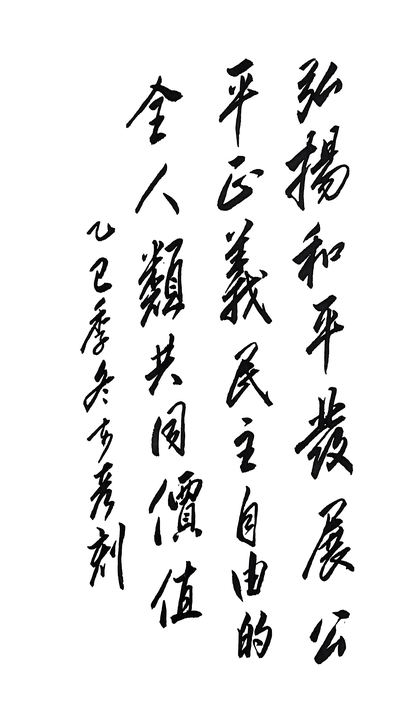 弘揚和平發展公
平正義民主自由的
全人類共同價值
乙巳季冬方彥刻